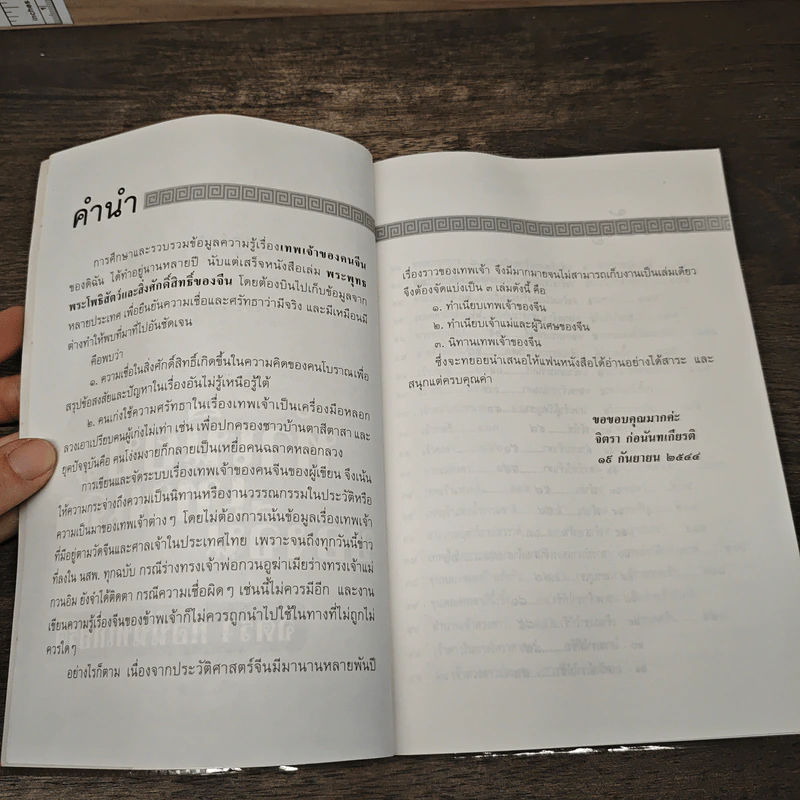 inches
1
คำนำ
การศึกษาและรวบรวมข้อมูลความรู้เรื่องเทพเจ้าของคนจีน
ของดิฉัน ได้ทำอยู่นานหลายปี นับแต่เสร็จหนังสือเล่ม พระพุทธ
พระโพธิสัตว์และสิ่งศักดิ์สิทธิ์ของจีน โดยต้องบินไปเก็บข้อมูลจาก
หลายประเทศ เพื่อยืนยันความเชื่อและศรัทธาว่ามีจริง และมีเหมือนมี
ต่างทำให้พบที่มาที่ไปอันชัดเจน
คือพบว่า
๑. ความเชื่อในสิ่งศักดิ์สิทธิ์เกิดขึ้นในความคิดของคนโบราณเพื่อ
สรุปข้อสงสัยและปัญหาในเรื่องอันไม่รู้เหนือรู้ใต้
๒. คนเก่งใช้ความศรัทธาในเรื่องเทพเจ้าเป็นเครื่องมือหลอก
ลวงเอาเปรียบคนผู้เก่งไม่เท่า เช่น เพื่อปกครองชาวบ้านตาสีตาสา และ
ยุคปัจจุบันคือ คนโง่งมงายก็กลายเป็นเหยื่อคนฉลาดหลอกลวง
การเขียนและจัดระบบเรื่องเทพเจ้าของคนจีนของผู้เขียน จึงเน้น
ให้ความกระจ่างถึงความเป็นนิทานหรืองานวรรณกรรมในประวัติหรือ
ความเป็นมาของเทพเจ้าต่างๆ โดยไม่ต้องการเน้นข้อมูลเรื่องเทพเจ้า
ที่มีอยู่ตามวัดจีนและศาลเจ้าในประเทศไทย เพราะจนถึงทุกวันนี้ข่าว
ที่ลงใน นสพ. ทุกฉบับ กรณีร่างทรงเจ้าพ่อกวนอูฆ่าเมียร่างทรงเจ้าแม่
กวนอิม ยังจำได้ติดตา กรณีความเชื่อผิดๆ เช่นนี้ไม่ควรมีอีก และงาน
เขียนความรู้เรื่องจีนของข้าพเจ้าก็ไม่ควรถูกนำไปใช้ในทางที่ไม่ถูกไม่
ควรใดๆ
อย่างไรก็ตาม เนื่องจากประวัติศาสตร์จีนมีมานานหลายพันปี
เรื่องราวของเทพเจ้า จึงมีมากมายจนไม่สามารถเก็บงานเป็นเล่มเดียว
จึงต้องจัดแบ่งเป็น ๓ เล่มดังนี้ คือ
๑. ทำเนียบเทพเจ้าของจีน
๒. ทำเนียบเจ้าแม่และผู้วิเศษของจีน
๓. นิทานเทพเจ้าของจีน
ซึ่งจะทยอยนำเสนอให้แฟนหนังสือได้อ่านอย่างได้สาระ และ
สนุกแต่ครบคุณค่า
ขอขอบคุณมากค่ะ
จิตรา ก่อนันทเกียรติ
๑๙ กันยายน ๒๕๔๔